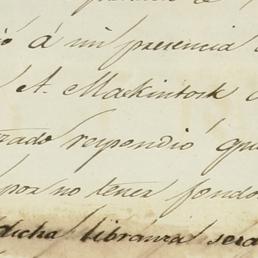 ió á mi presencia
A. Mackintosh
rado respondió qu
por no tener fondo
dicha libranza sera